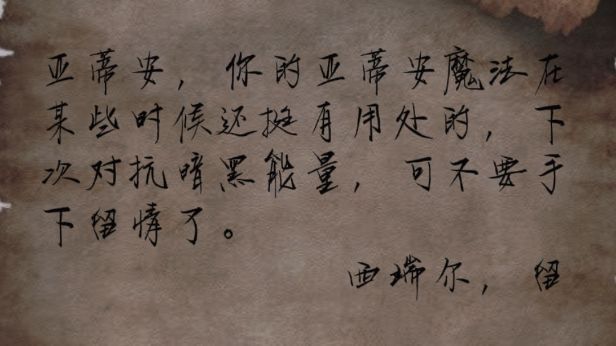 亚蒂安，你的亚蒂安魔法在
某些时候还挺有用处的，下
次对抗暗黑能量，可不要手
下留情了。
西瑞尔，留